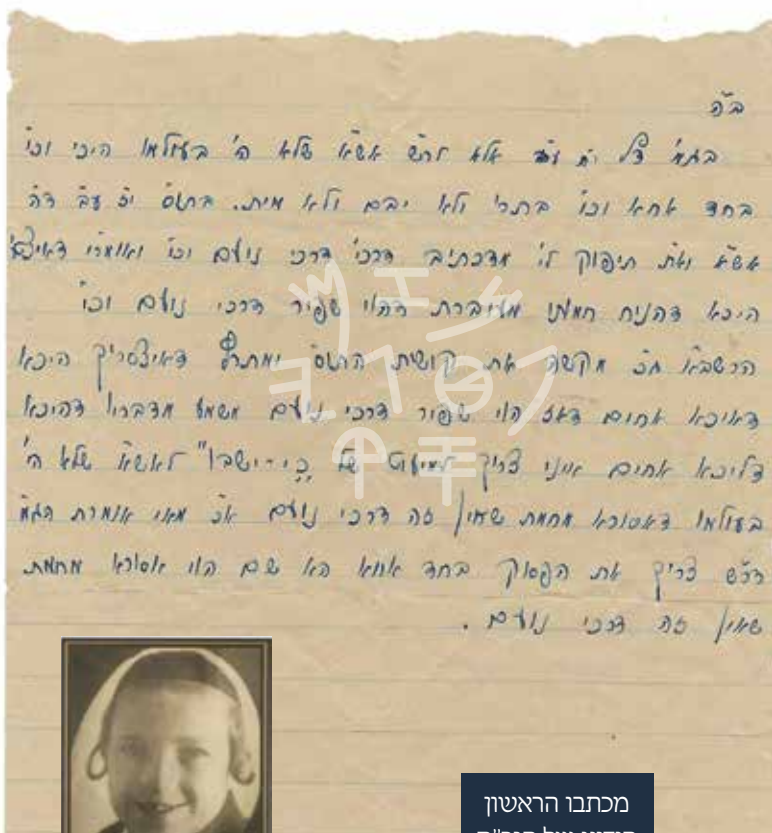 ב"ה
בגמ' דף אלא לר"ש אש"א שלא ה' בעולמו היכי וכו'
בחד אחא וכו' בתרי ולא יבם ולא מית. בתוס' יז ע"ב ד"ה
אש"א וא"ת תיפוק לי' מדכתיב דרכי' דרכי נועם וכו' ואומרי'
היכא דהניח חמותו מעוברת דהוי שפיר דרכי נועם וכו'
הרשב"א מקשה את קושית התוס' ומתרץ דאיצטריך היכא
דאיכא אחים דאז הוי שפיר דרכי נועם משמע מדבריו דהיכא
דליכא אחים איני צריך למיעוט של "כי ישבו" לאש"א שלא הי'
בעולמו דאסורא מחמת שאין זה דרכי נועם א"כ מאי אומרת הגמ'
דר"ש צריך את הפסוק בחד אחא הא שם הוי אסורא מחמת
שאין זה דרכי נועם.
מכתבו הראשון